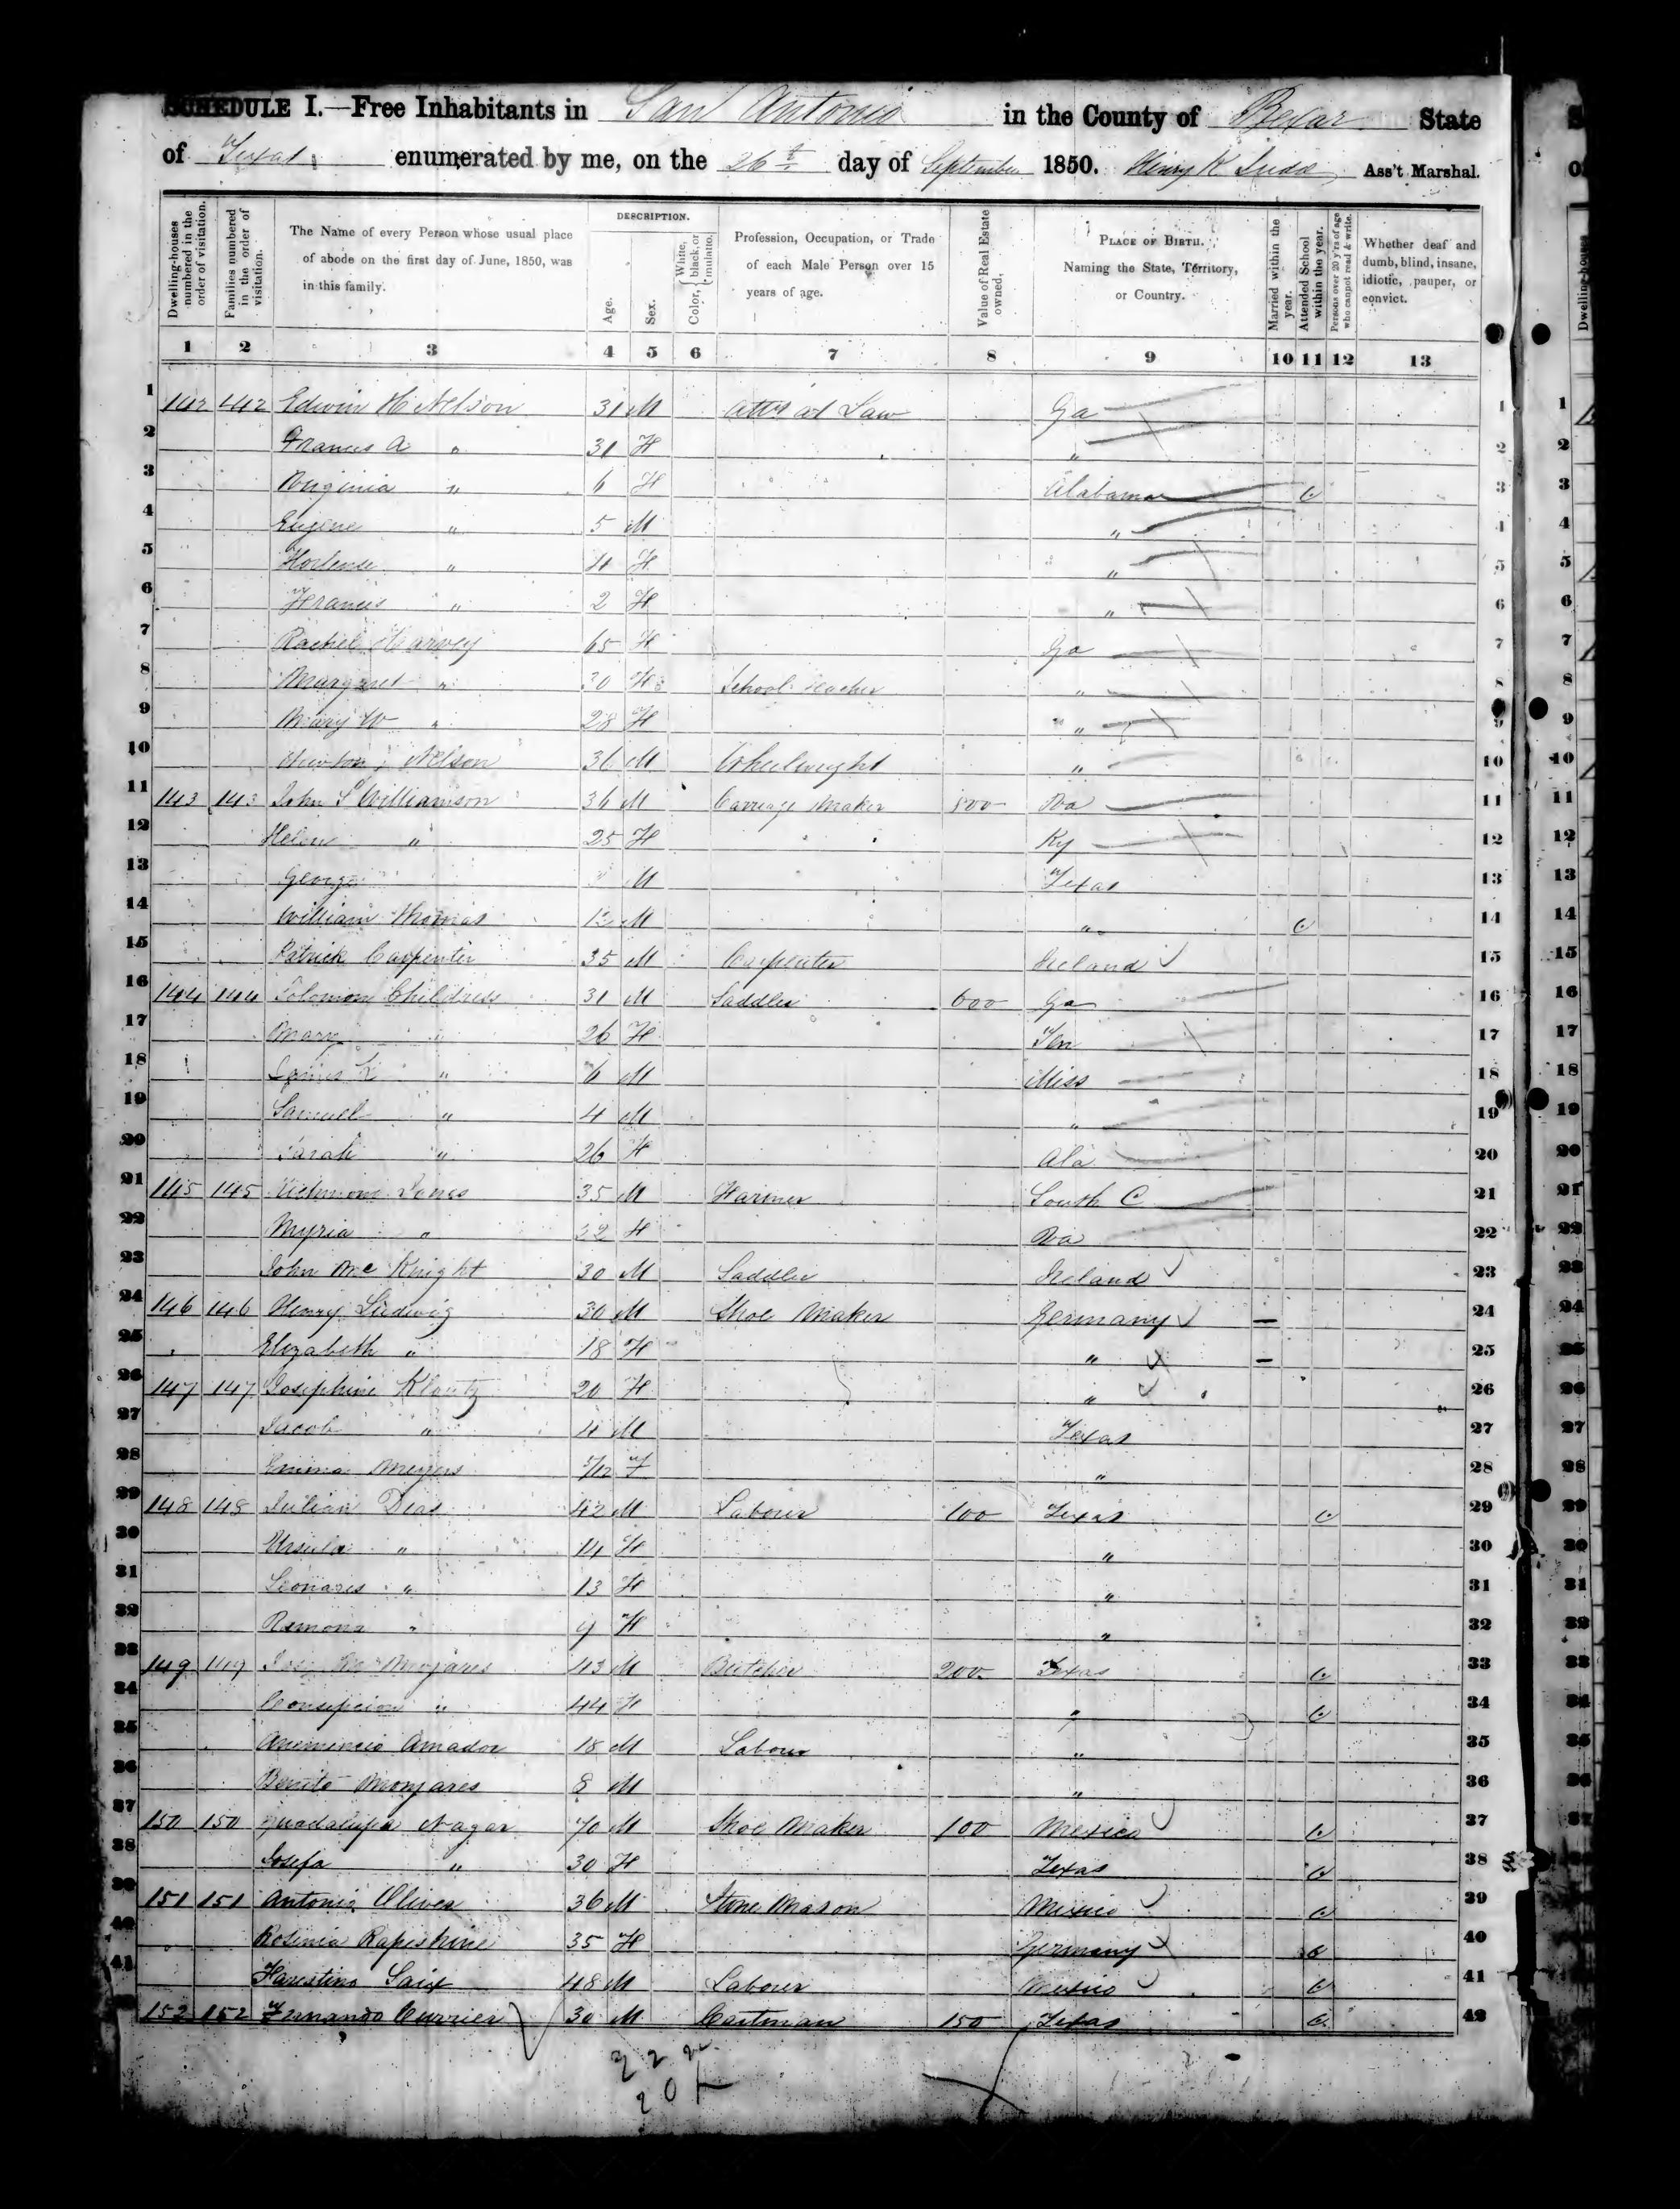 SCHEDULE I.—Free Inhabitants in San Antonio in the County of Bexar State
of Texas enumerated by me, on the 26th day of September 1850. Henry K Judd Ass't Marshal.
Dwelling-houses numbered in the order of visitation.
Families numbered in the order of visitation.
The Name of every Person whose usual place of abode on the first day of June, 1850, was in this family.
DESCRIPTION.
Age.
Sex.
Color, { White, black, or mulatto.
Profession, Occupation, or Trade of each Male Person over 15 years of age.
Value of Real Estate owned.
PLACE OF BIRTH. Naming the State, Territory, or Country.
Married within the year.
Attended School within the year.
Persons over 20 y'rs of age who cannot read & write.
Whether deaf and dumb, blind, insane, idiotic, pauper, or convict.
1 2 3 4 5 6 7 8 9 10 11 12 13
1 142 142 Edwin H Nelson 31 M Atty at Law Ga 1
2 Frances A " 31 F " 2
3 Virginia " 6 F Alabama 3
4 Eugine " 5 M " 4
5 Hortense " 4 F " 5
6 Francis " 2 F " 6
7 Rachel Harvey 65 F Ga 7
8 Margaret " 30 F School teacher " 8
9 Mary W " 28 F " 9
10 Nelson 36 M Wheelwright " 10
11 143 143 John S Williamson 36 M Carriage Maker 800 Va 11
12 Helen " 25 F Ky 12
13 George M Texas 13
14 William Thomas 12 M " 14
15 Patrick Carpenter 35 M Carpenter Ireland 15
16 144 144 Solomon Childress 31 M Saddler 600 Ga 16
17 Mary " 26 F Ten 17
18 James K " 6 M Miss 18
19 Samuel " 4 M " 19
20 Sarah " 26 F Ala 20
21 145 145 Jones 35 M Farmer South C 21
22 Myria " 22 F Va 22
23 John McKnight 30 M Saddler Ireland 23
24 146 146 Henry Ludwig 30 M Shoe Maker Germany 24
25 Elizabeth " 18 F " 25
26 147 147 Josephine Klautz 20 F " 26
27 Jacob " 4 M Texas 27
28 Emma Meyers 5/12 F " 28
29 148 148 Julian Dias 42 M Labour 100 Texas 29
30 Ursula " 14 F " 30
31 Leonares " 13 F " 31
32 Ramona " 9 F " 32
33 149 149 Jose Ma Monjares 43 M Butcher 200 Texas 33
34 Consepcion " 44 F " 34
35 Amador 18 M Labour " 35
36 Benito Monjares 8 M " 36
37 150 150 Guadalupa Nagar 70 M Shoe Maker 100 Mexico 37
38 Josefa " 30 F Texas 38
39 151 151 Antonio Olivea 36 M Stone Mason Mexico 39
40 Rosinia Rapeshine 35 F Germany 40
41 Faustino Saix 48 M Labour Mexico 41
42 152 152 Fernando Currier 30 M Cartman 150 Texas 42
22
20